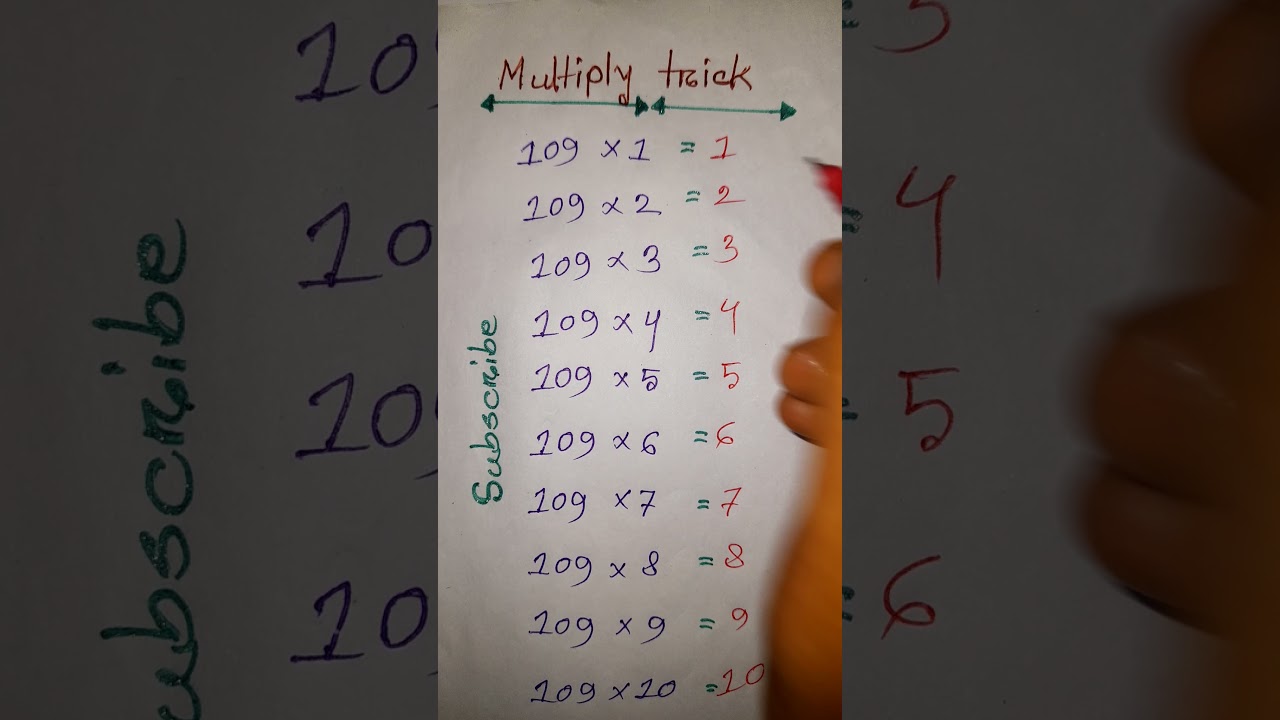 Multiply trick
109 × 1 = 1
109 × 2 = 2
109 × 3 = 3
109 × 4 = 4
109 × 5 = 5
109 × 6 = 6
109 × 7 = 7
109 × 8 = 8
109 × 9 = 9
109 × 10 = 10
Subscribe